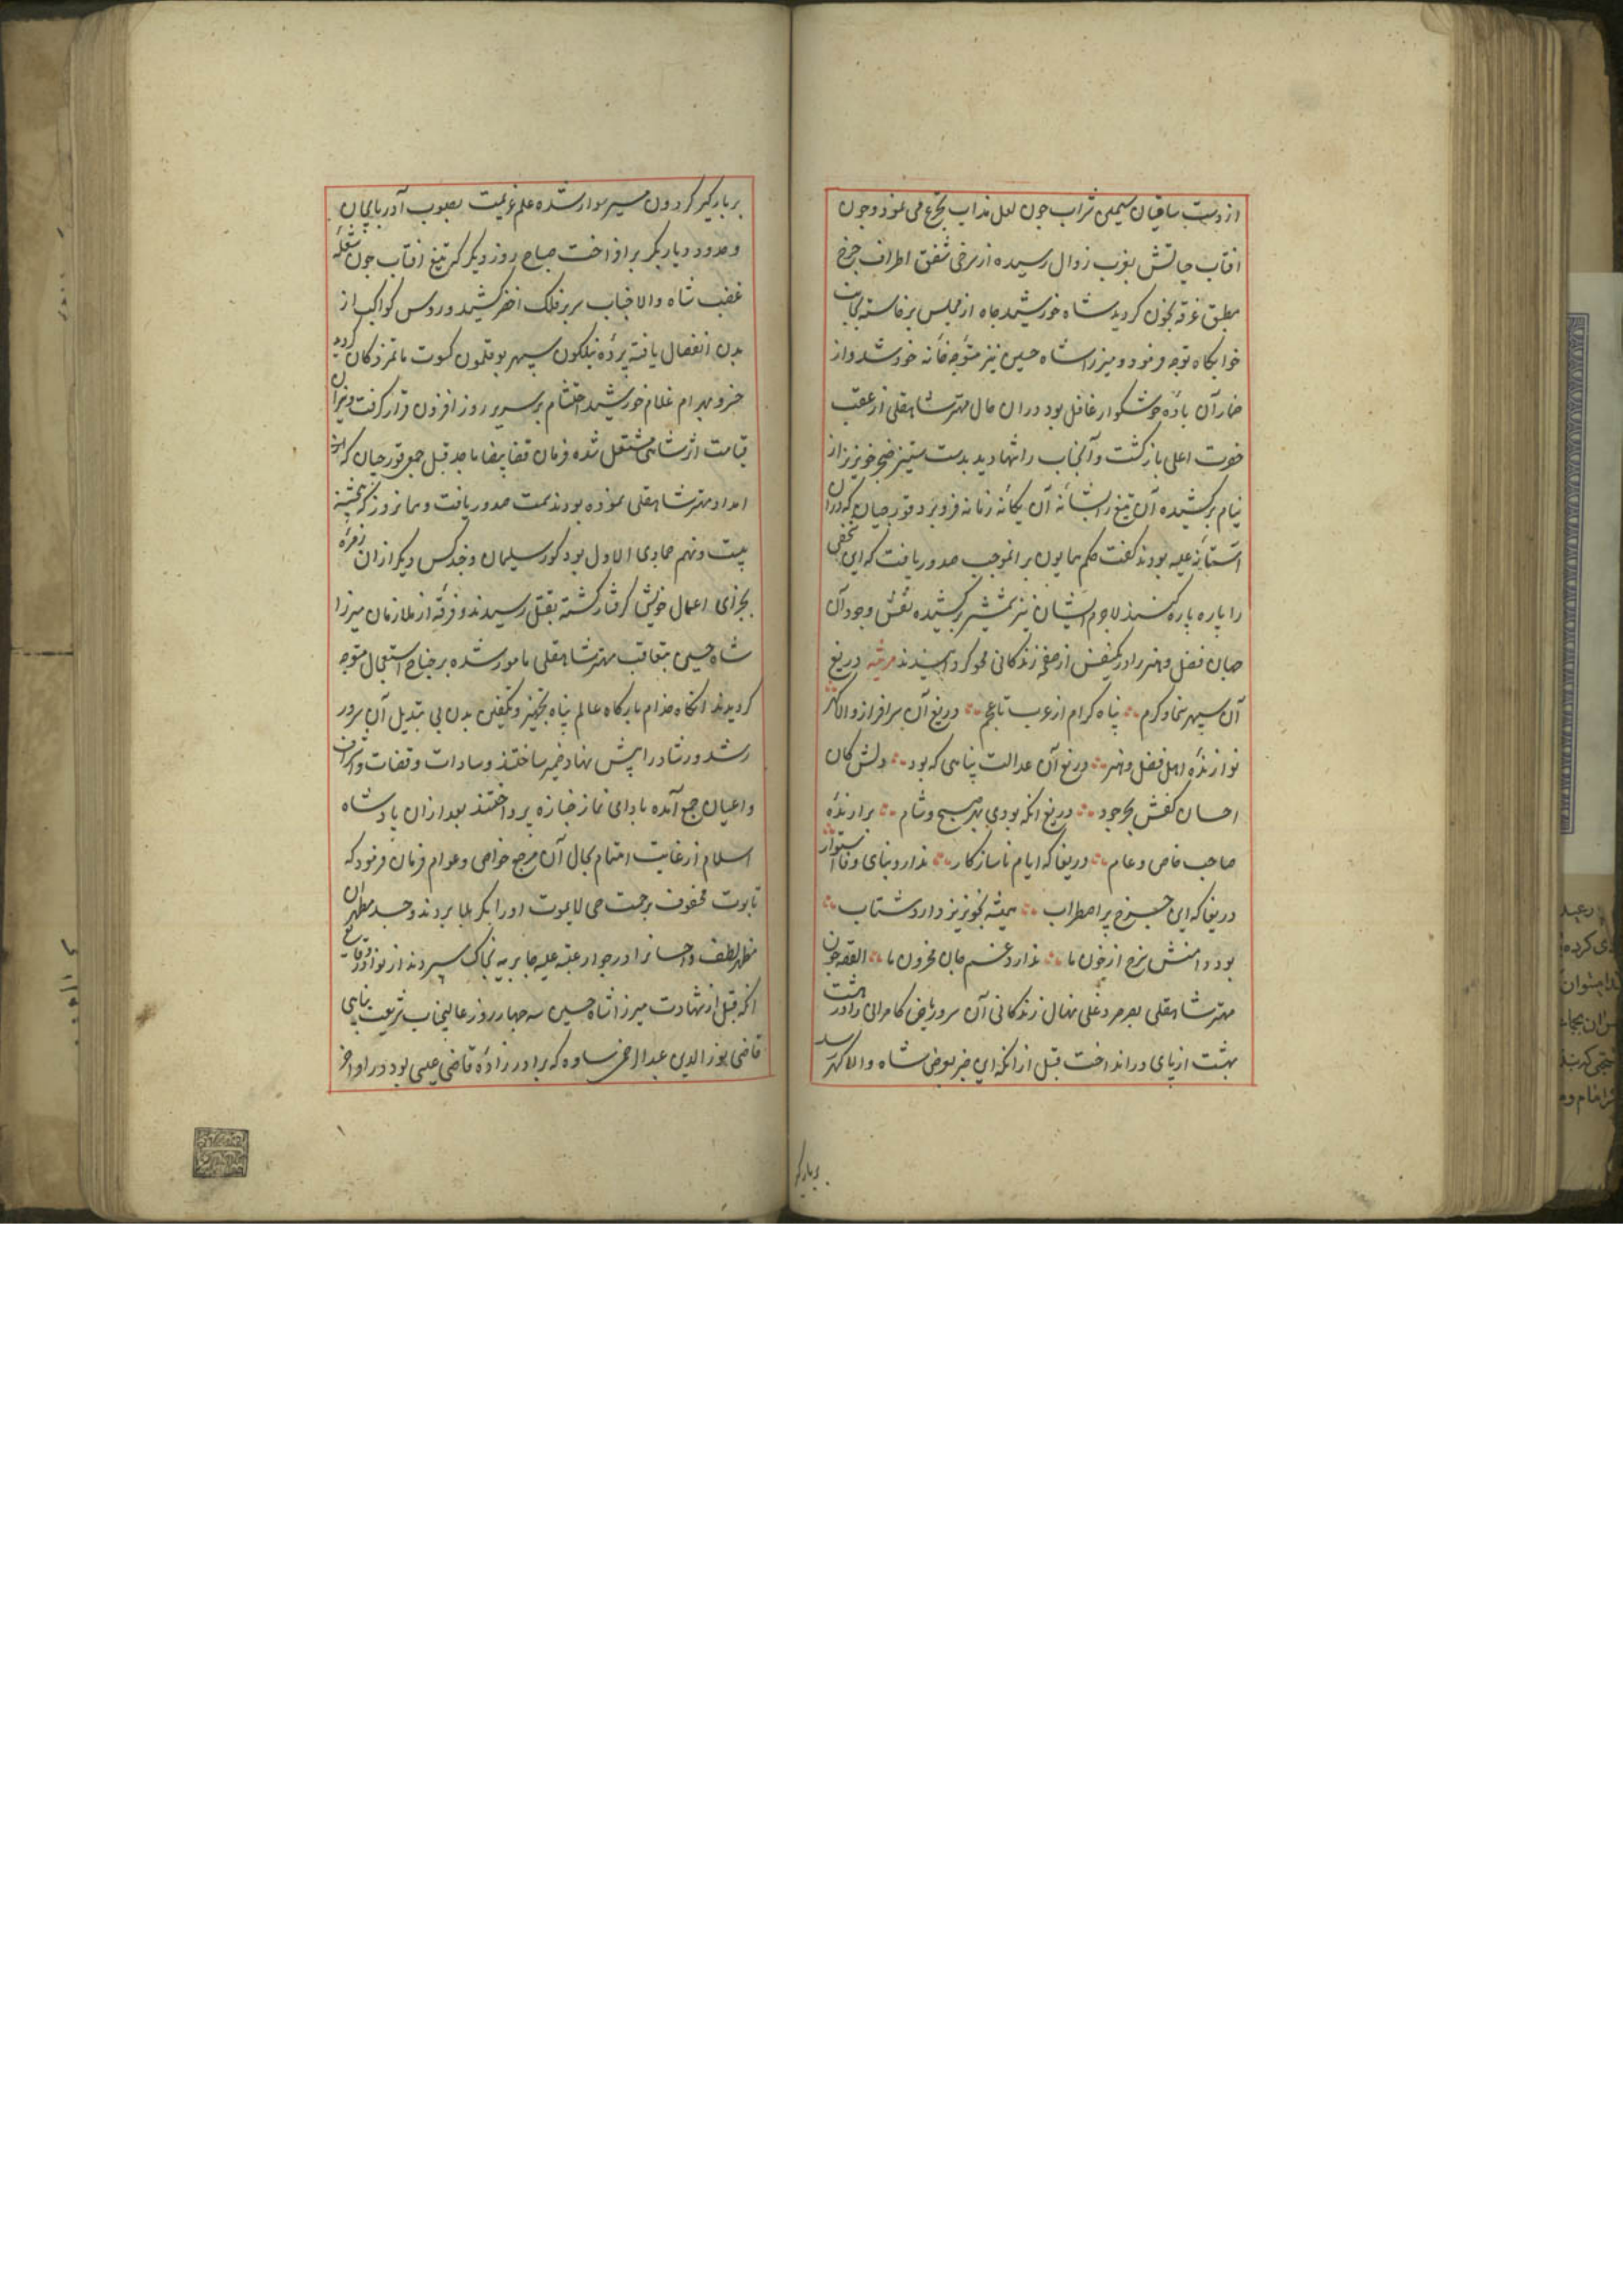 از دست ساقیان سیمین شراب چون لعل مذاب تجرع می نمود و چون
افتاب حیاتش بغرب زوال رسیده از سرخی شفق اطراف چرخ
مطبق غرقه بخون کردید شاه خورشید جاه از مجلس برخاسته بجانب
خوابکاه توجه فرمود و میرزا شاه حسین نیز متوجه خانه خود شد و از
خمار آن باده خوشکوار غافل بود دران حال مهتر شاهقلی از عقب
حضرت اعلی بازکشت و آنجناب را تنها دید بدست ستیز خنجر خونریز از
نیام برکشیده آن تیغ را بشانه آن یکانه زمانه فرو برد و قورچیان که دران
استانه علیه بودند کفت حکم همایون برانموجب صدور یافت که این شخص
را پاره پاره کنند لاجرم ایشان نیز شمشیر برکشیده نقش وجود آن
جهان فضل و هنر را در یکنفس از صفحه زندکانی محو کردانیدند مرثیه دریغ
آن سپهر سخا و کرم پناه کرام از عرب تا عجم دریغ آن سرافراز والا کهر
نوازنده اهل فضل و هنر دریغ آن عدالت پناهی که بود دلش کان
احسان کفش بحر جود دریغ انکه بودی بهر صبح و شام برارنده
حاجت خاص و عام دریغا که ایام ناسازکار ندارد بنای وفا استوار
دریغا که این چرخ پر اضطراب همیشه بخونریز دارد شتاب
بود دامنش سرخ از خون ما ندارد غم جان محزون ما القصه چون
مهتر شاهقلی بصرصر دغلی نهال زندکانی آن سرو ریاض کامرانی را در هشت
بهشت از پای درانداخت قبل از انکه این خبر بعرض شاه والا کهر رسد
بر بارکیر
بر بارکیر کردون مسیر سوار شده علم عزیمت بصوب آذربایجان
و حدود دیاربکر برافراخت صباح روز دیکر که تیغ افتاب چون شعله
غضب شاه والا جناب بر سر فلک اخضر کشید و روس کواکب از
بدن انفصال یافته پرده نیلکون سپهر بوقلمون کسوت ماتمزدکان کردید
خسرو بهرام غلام خورشید احتشام بر سریر روز افزون قرار کرفت و نیران
قیامت اثر شاهی مشتعل شده فرمان قضا بقتل جمعی قورچیان که
امداد مهتر شاهقلی نموده بودند سمت صدور یافت و همانروز که پنجشنبه
بیست و نهم جمادی الاول بود کور سلیمان و چند کس دیکر ازان زمره
بجزای اعمال خویش کرفتار کشته بقتل رسیدند و فرقه از ملازمان میرزا
شاه حسین بتعاقب مهتر شاهقلی مامور شده بر جناح استعجال متوجه
کردیدند انکاه خدام بارکاه عالم پناه بتجهیز و تکفین بدن بی بدیل آن سرور
رشد و رشاد را پیش نهاد ضمیر ساختند و سادات و قضات و اشراف
و اعیان جمع آمده بادای نماز جنازه پرداختند بعد ازان پادشاه
اسلام از غایت اهتمام بحال آن مرجع خواص و عوام فرمان فرمود که
تابوت محفوف برحمت حی لایموت او را بکربلا بردند و جسد مطهر ان
مظهر لطف و احسانرا در جوار عتبه علیه حایریه بخاک سپردند از نوادر وقایع
انکه قبل از شهادت میرزا شاه حسین سه چهار روز عالیجناب شریعت پناهی
قاضی نورالدین عبدالرحمن ساوه که برادر زاده قاضی عیسی بود در اواخر